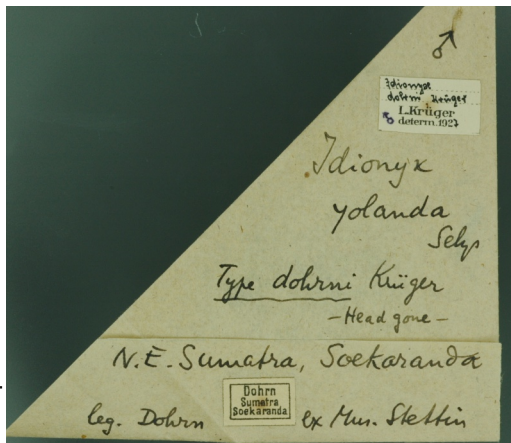 ♂
Idionyx
dohrni Krüger
L. Krüger
♂ determ. 1927
Idionyx
yolanda
Selys
Type dohrni Krüger
-Head gone-
N.E. Sumatra, Soekaranda
Dohrn
Sumatra
Soekaranda
leg. Dohrn
ex Mus. Stettin